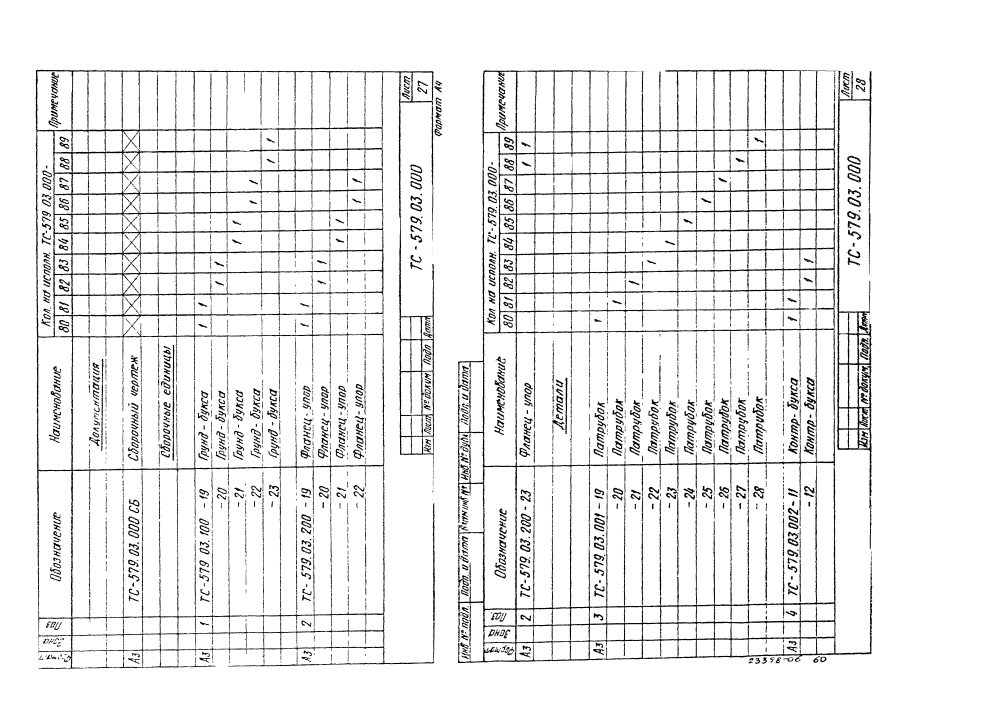 Формат Зона Поз Обозначение Наименование Кол. на исполн. ТС-579.03.000- Примечание
80 81 82 83 84 85 86 87 88 89
Документация
А3 ТС-579.03.000 СБ Сборочный чертеж
Сборочные единицы
А3 1 ТС-579.03.100 -19 Грунд-букса 1 1
-20 Грунд-букса 1 1
-21 Грунд-букса 1 1
-22 Грунд-букса 1 1
-23 Грунд-букса 1 1
А3 2 ТС-579.03.200 -19 Фланец-упор 1 1
-20 Фланец-упор 1 1
-21 Фланец-упор 1 1
-22 Фланец-упор 1 1
Изм Лист № докум Подп Дата
ТС-579.03.000
Лист
27
Формат А4
Инв № подл Подп. и дата Взам инв № Инв № дубл Подп. и дата
Формат Зона Поз Обозначение Наименование Кол на исполн. ТС-579.03.000- Примечание
80 81 82 83 84 85 86 87 88 89
А3 2 ТС-579.03.200-23 Фланец-упор 1 1
Детали
А3 3 ТС-579.03.001-19 Патрубок 1
-20 Патрубок 1
-21 Патрубок 1
-22 Патрубок 1
-23 Патрубок 1
-24 Патрубок 1
-25 Патрубок 1
-26 Патрубок 1
-27 Патрубок 1
-28 Патрубок 1
А3 4 ТС-579.03.002-11 Контр-букса 1 1
-12 Контр-букса 1 1
Изм Лист № докум. Подп. Дата
ТС-579.03.000
Лист
28
23398-06 60